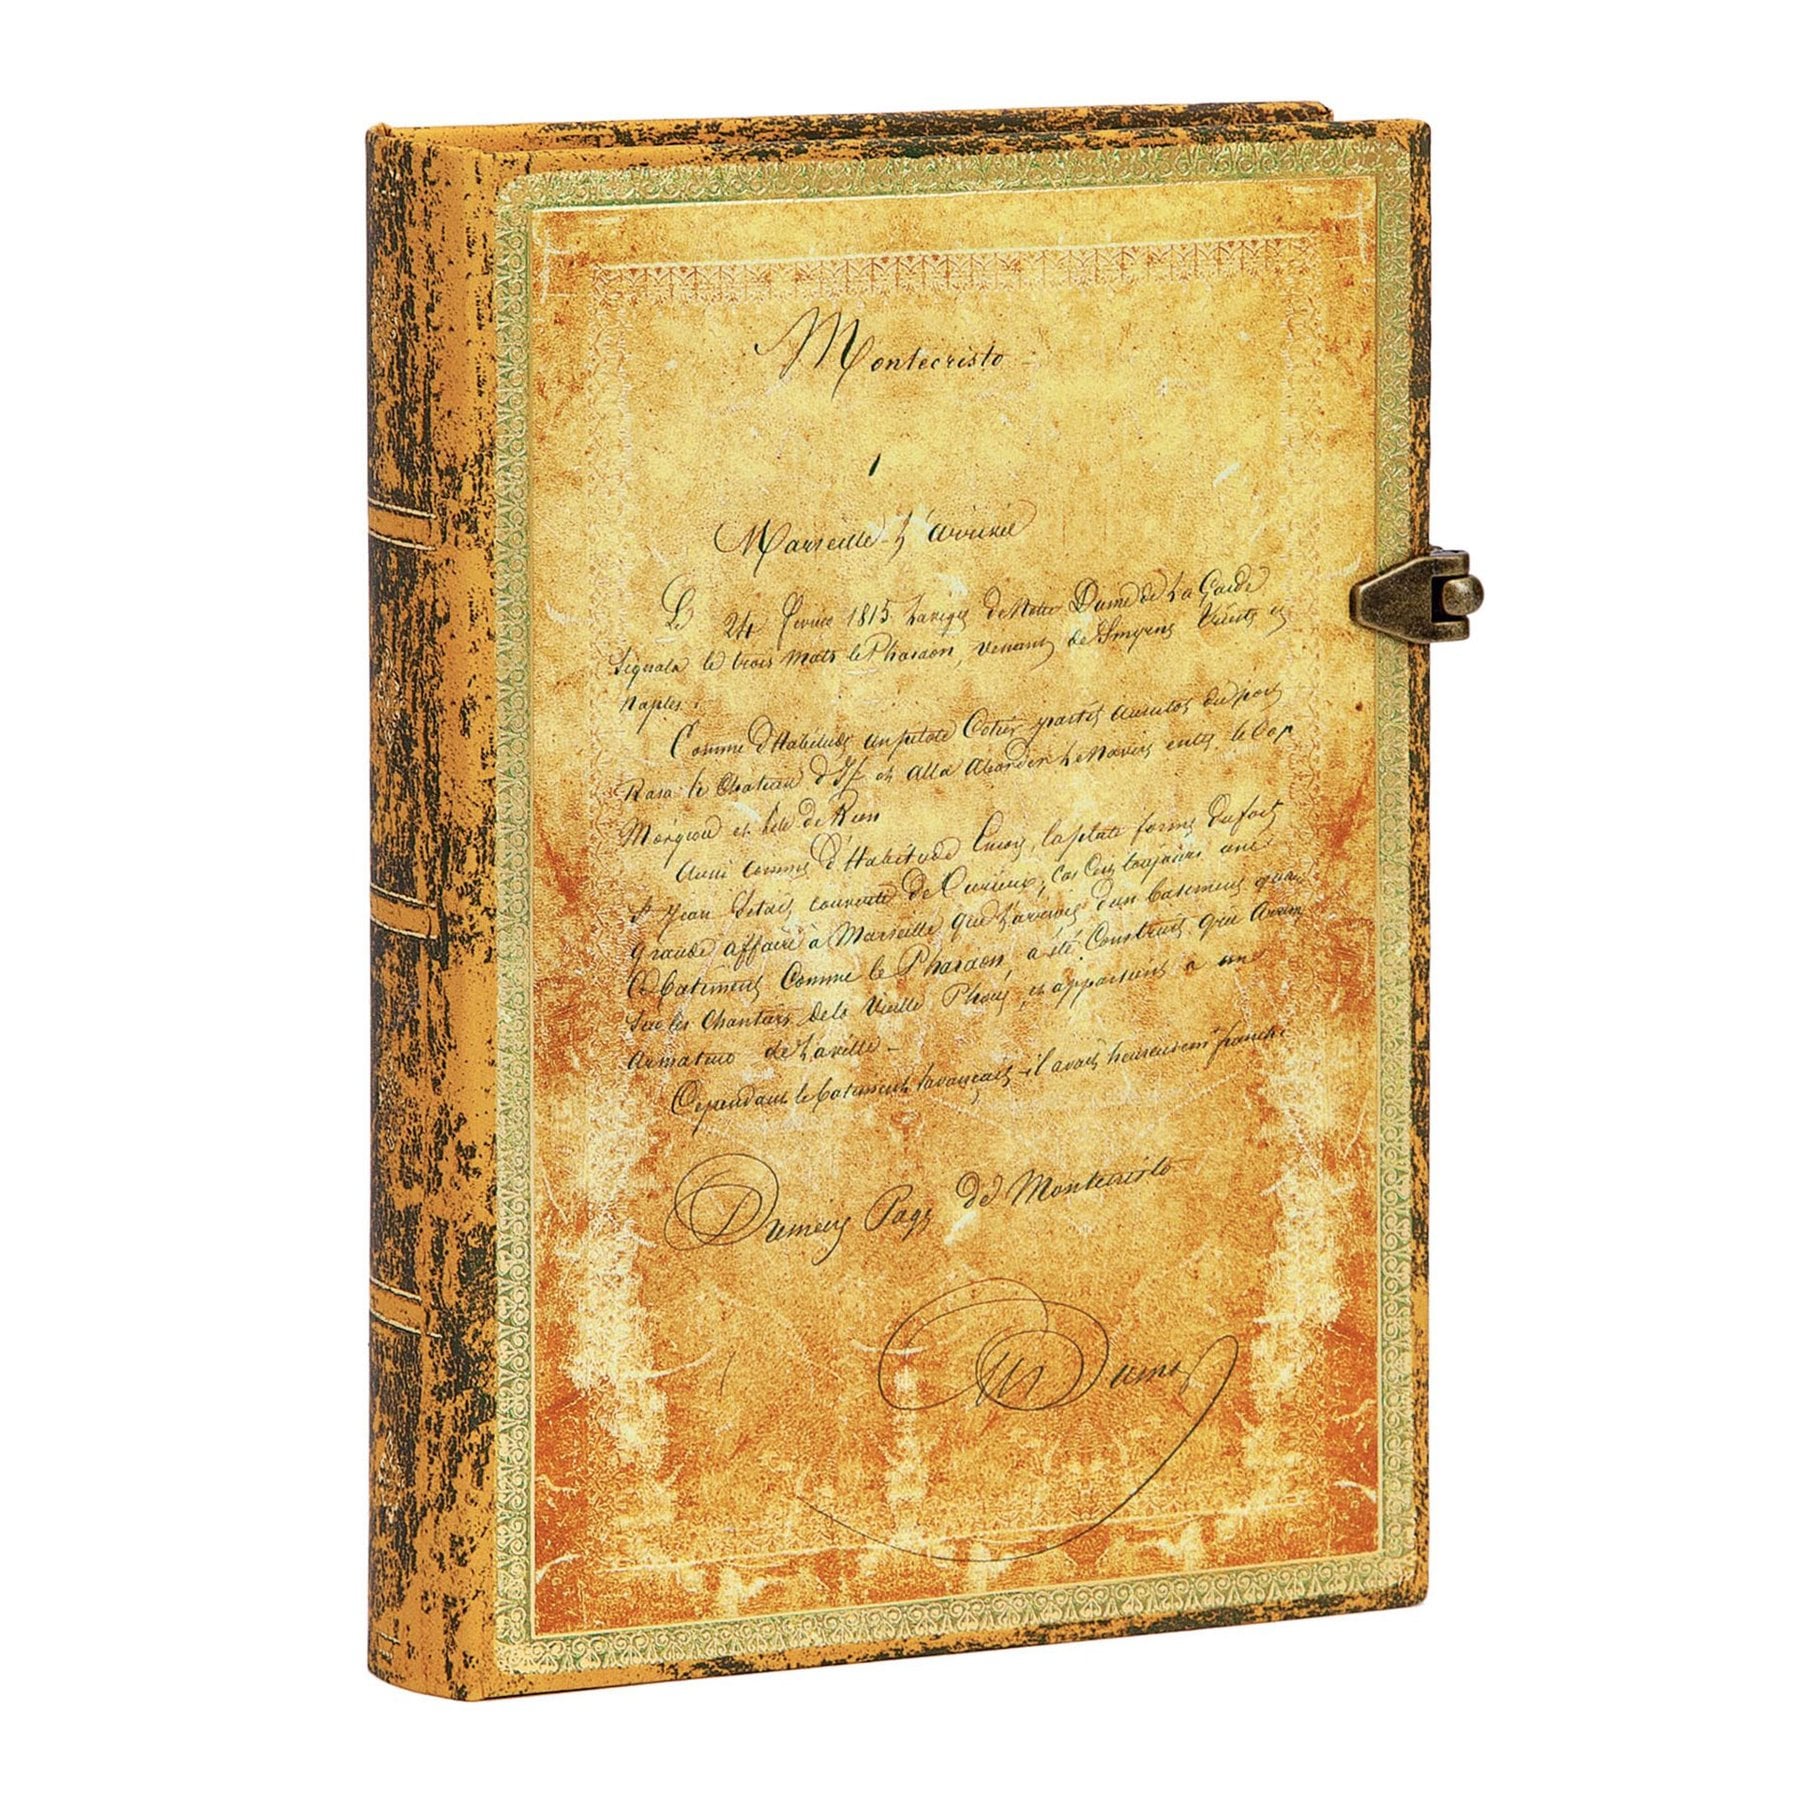 Montecristo
1
Marseille – L'arrivée
Le 24 fevrier 1815 La vigie de Notre Dame de La Garde
Signala le trois mats le Pharaon, venant de Smyrne Trieste et
Naples.
Comme d'Habitude un pilote Cotier partit aussitot du port
Rasa le Chateau d'If et alla aborder Le Navire entre le Cap
Morgiou et l'ile de Rion
Aussi comme d'Habitude Encore, la plate forme du fort
St Jean S'etait couverte de Curieux, Car C'est toujours une
grande affaire à Marseille que L'arrivée d'un batiment quand
Ce batiment Comme le Pharaon, a été Construit,
Sur les Chantiers de la Vieille Phocée, et appartient a un
Armateur de La ville –
Cependant le batiment s'avançait – il avait heureusement franchi
Premiere Page de Montecristo
Alex Dumas